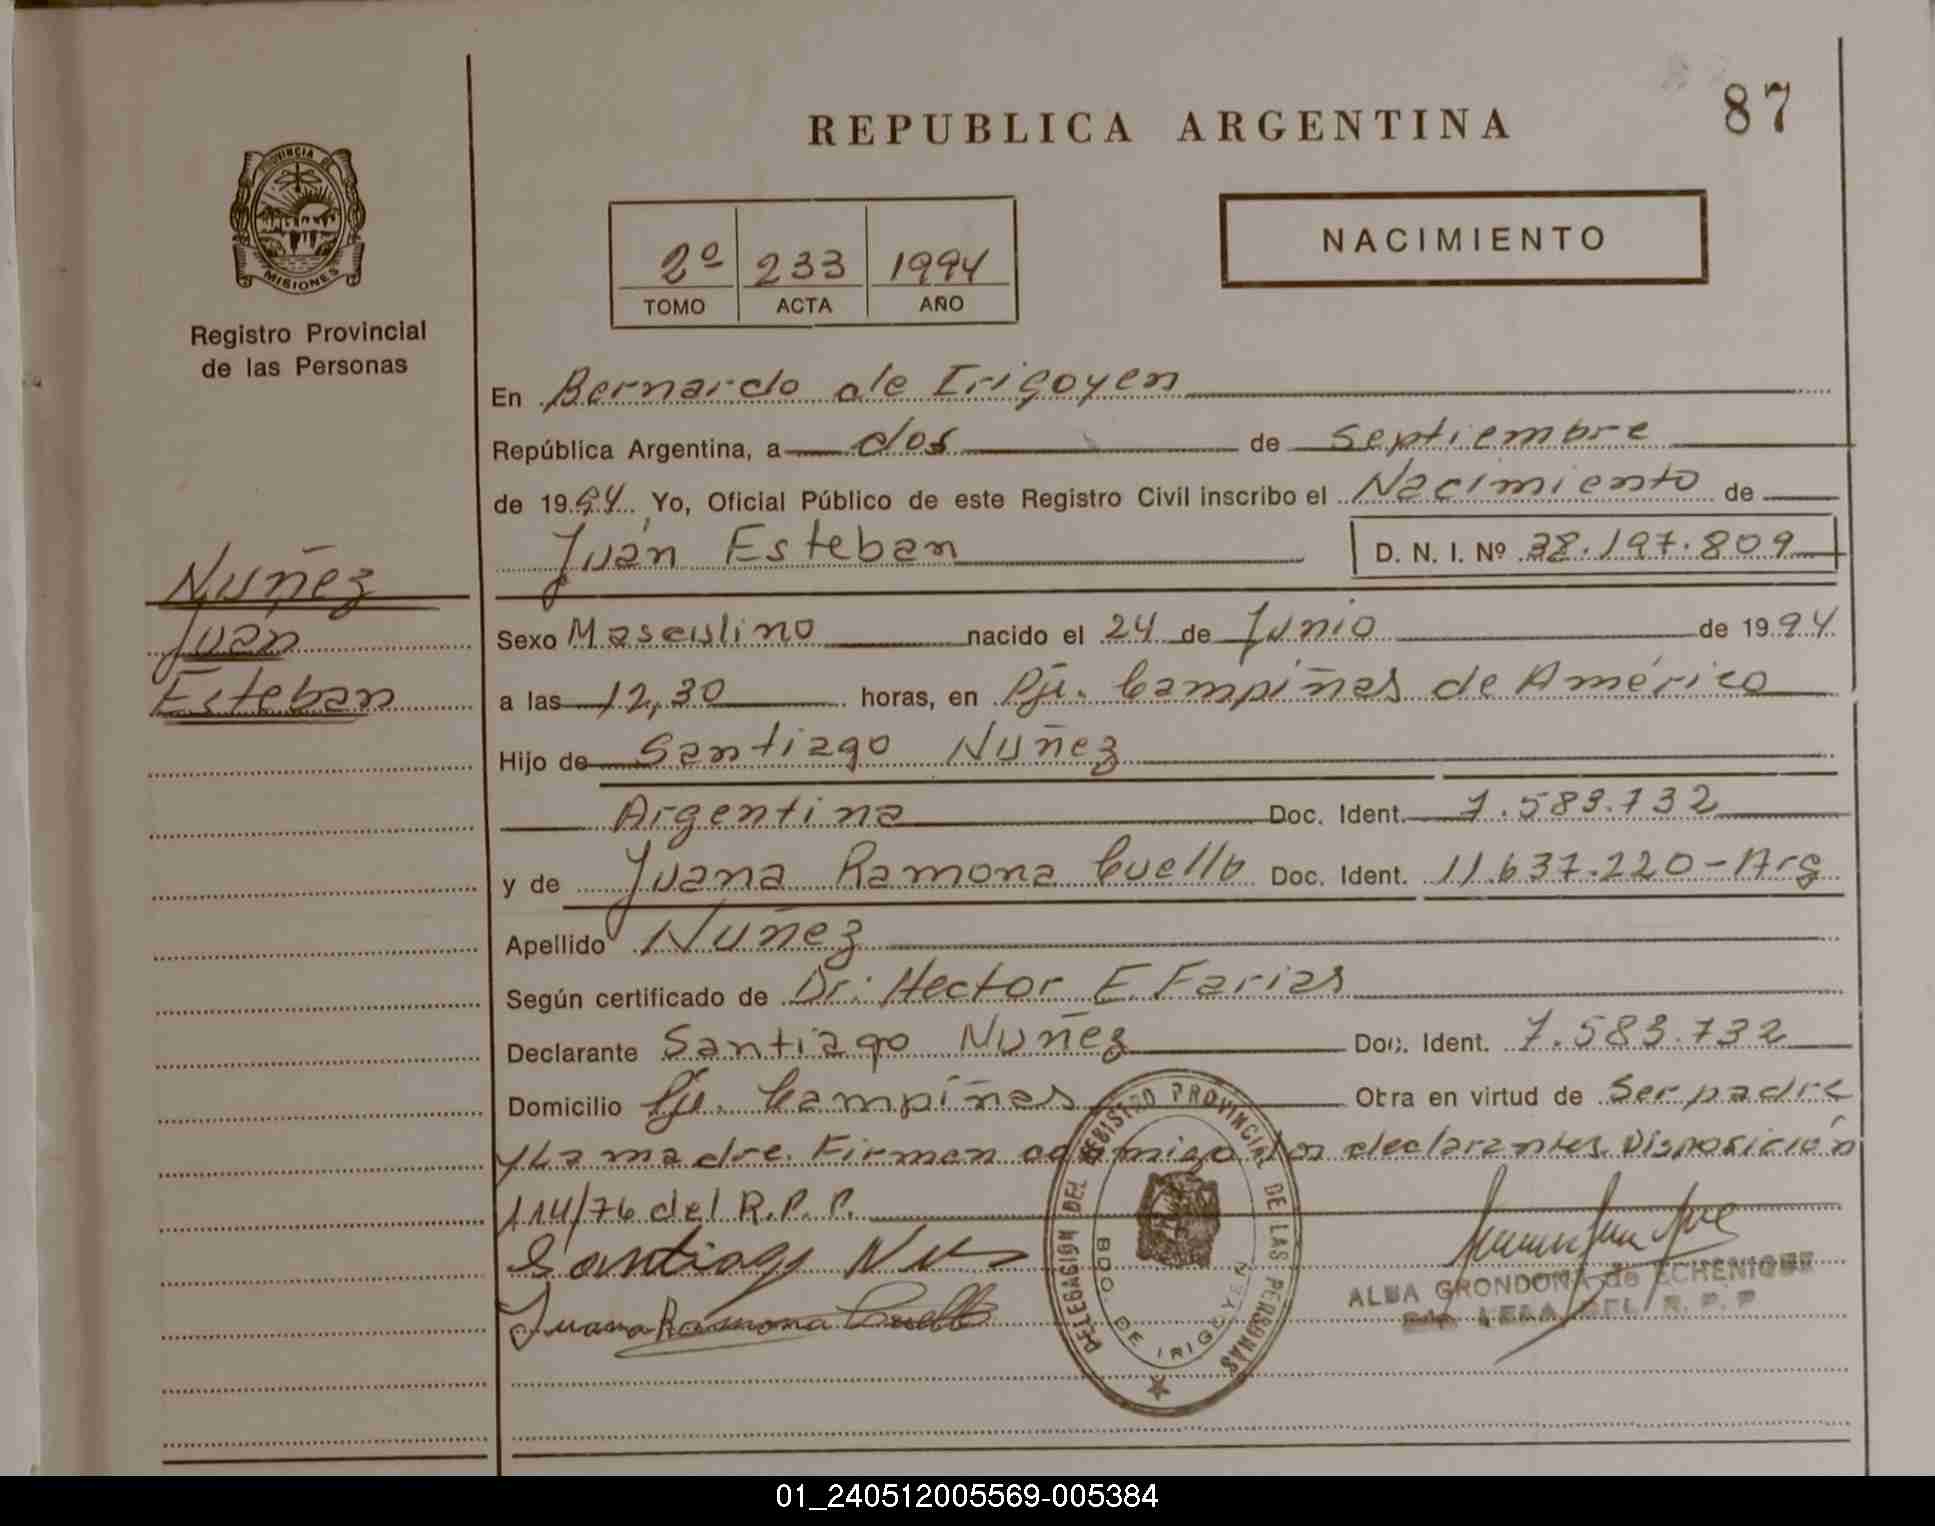 REPUBLICA ARGENTINA
87
PROVINCIA DE
MISIONES
Registro Provincial
de las Personas
2º 233 1994
TOMO ACTA AÑO
NACIMIENTO
En Bernardo de Irigoyen
República Argentina, a dos de septiembre
de 1994 Yo, Oficial Público de este Registro Civil inscribo el Nacimiento de
Juan Esteban D. N. I. Nº 38.197.809
Nuñez
Juan
Esteban
Sexo Masculino nacido el 24 de Junio de 1994
a las 12,30 horas, en Pje. Campiñas de Américo
Hijo de Santiago Nuñez
Argentina Doc. Ident. 7.583.732
y de Juana Ramona Cuello Doc. Ident. 11.637.220-Arg
Apellido Nuñez
Según certificado de Dr. Hector E. Farias
Declarante Santiago Nuñez Doc. Ident. 7.583.732
Domicilio Pje. Campiñas Obra en virtud de Ser padre
y La madre. Firman conmigo los declarantes. Disposición
114/76 del R.P.P.
Santiago Nu
Juana Ramona Cuello
DELEGACION DEL REGISTRO PROVINCIAL DE LAS PERSONAS
BDO. DE IRIGOYEN
ALBA GRONDONA de ECHENIQUE
DEL R. P. P.
01_240512005569-005384